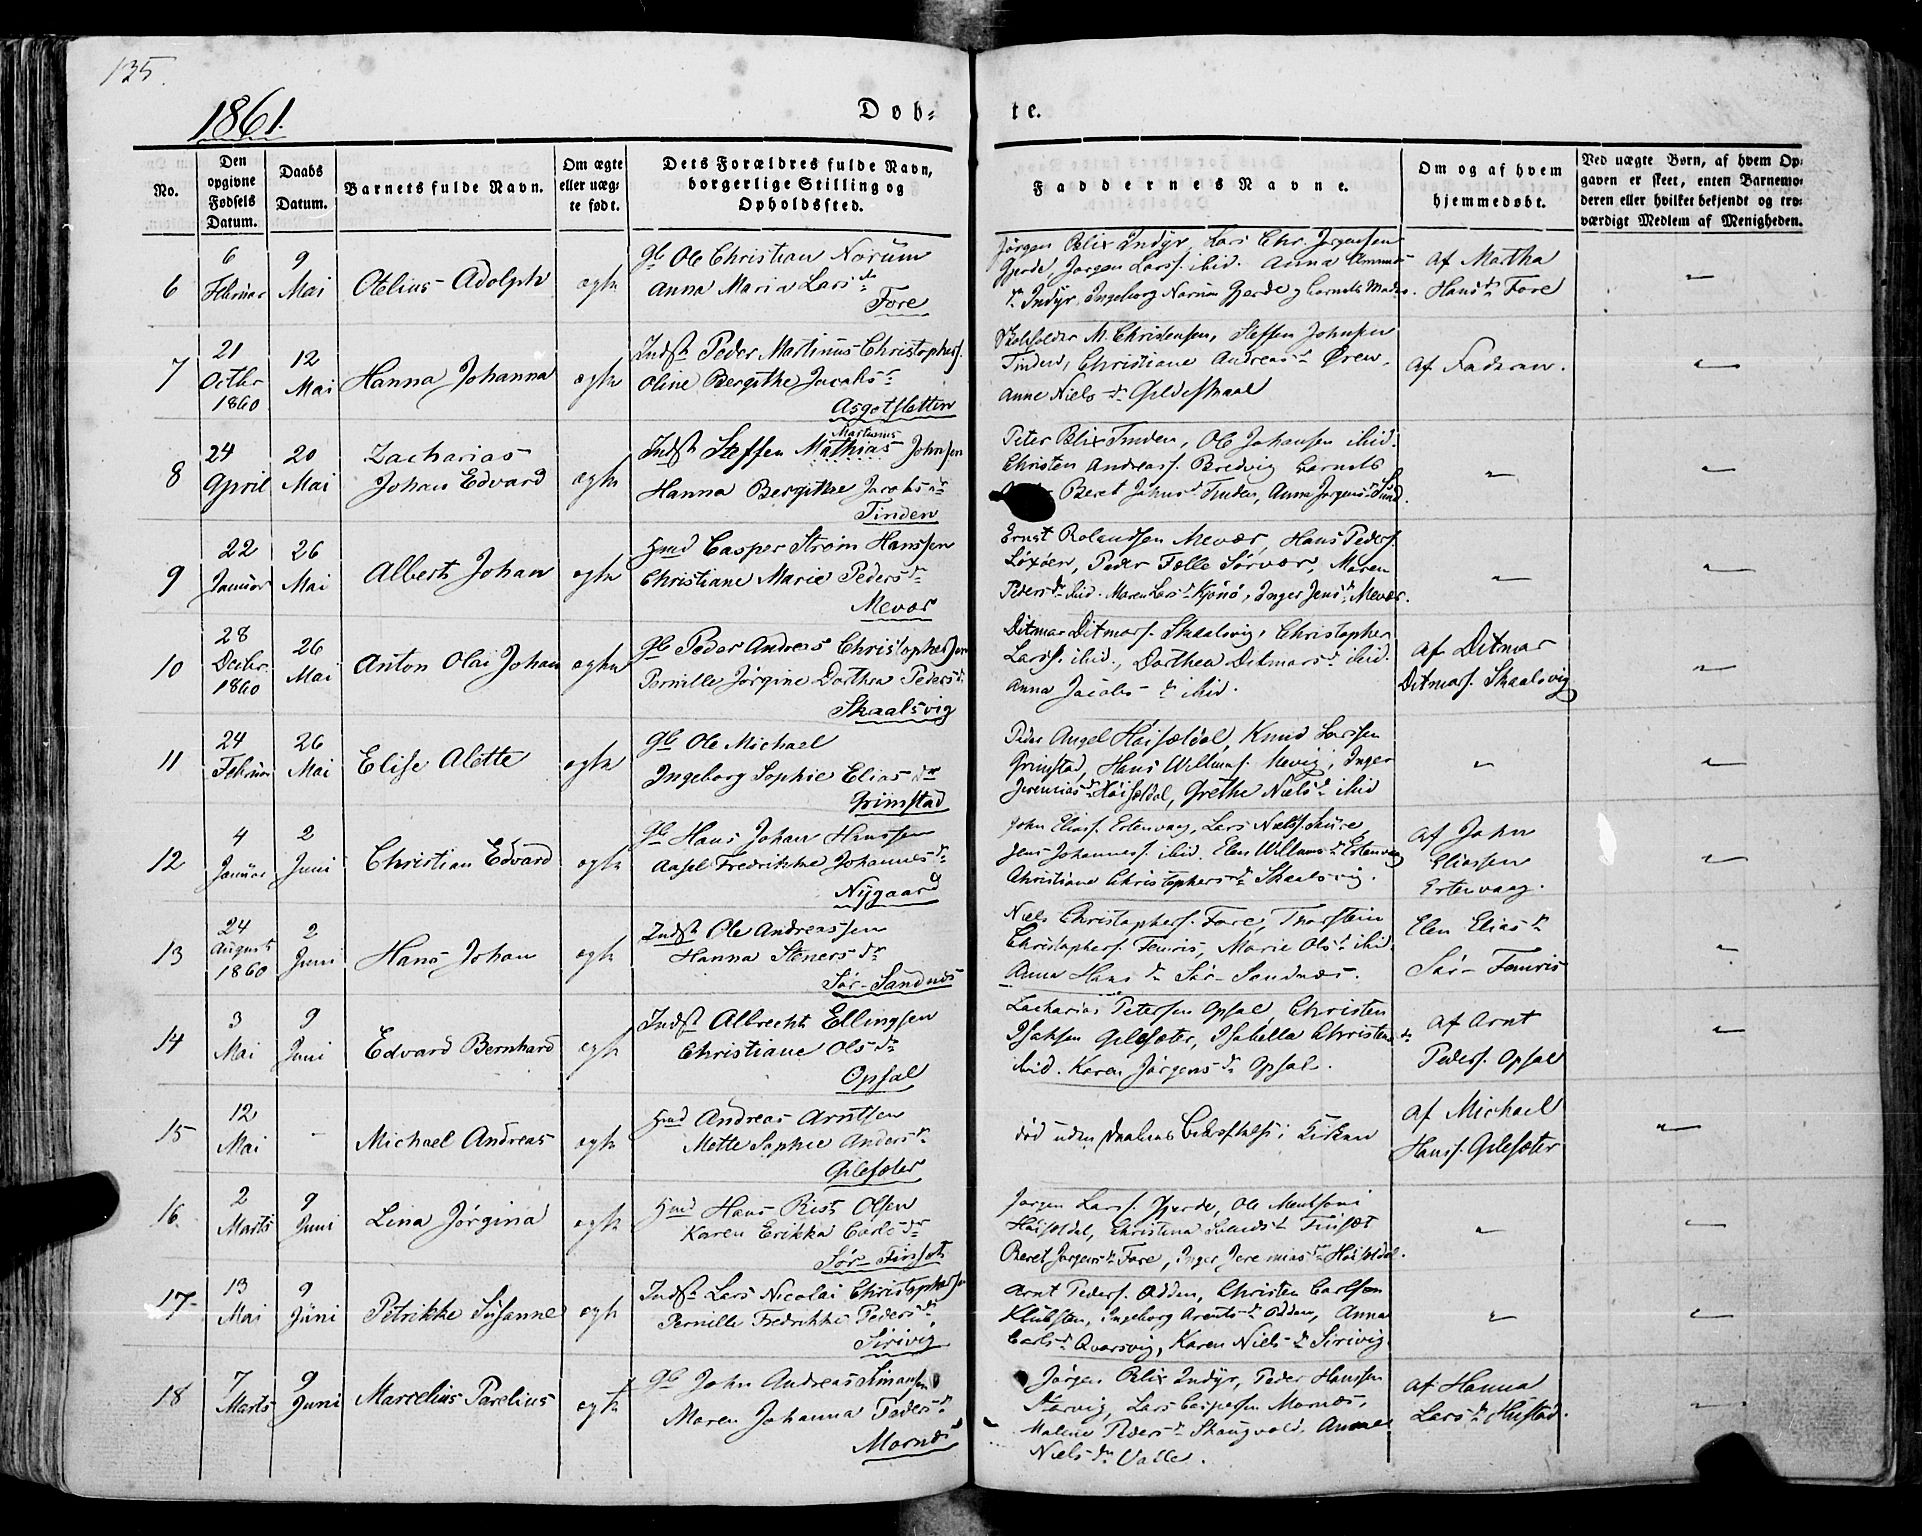 135.
1861.
Døb-
te.
No.
Den opgivne Fødsels Datum.
Daabs Datum.
Barnets fulde Navn.
Om ægte eller uæg-te født.
Dets Forældres fulde Navn, borgerlige Stilling og Opholdssted.
Faddernes Navne.
Om og af hvem hjemmedøbt.
Ved uægte Børn, af hvem Op-gaven er skeet, enten Barnemo-deren eller hvilket bekjendt og tro-værdigt Medlem af Menigheden.
6
6 Februar
9 Mai
Otelius Adolph
ægte
Gb Ole Christian Norum
Anna Maria Larsdr
Fore
Jørgen Blix Indyr, Lars Chr. Jørgensen
Gjerde, Jørgen Larss. ibid. Anna Amunds-
dr Indyr, Ingeborg Norum Gjerde og barnets Moder.
af Martha
Hansdr Fore
-
7
21 Octbr 1860
12 Mai
Hanna Johanna
ægte
Indst Peder Martinus Christophers.
Oline Bergithe Jacobsdr
Asgotsletten
M. Christensen, Steffen Johnsen
Tinden, Christiane Andreasdr Øren,
Anne Nielsdr Gildeskaal
af Faderen.
-
8
24 April
20 Mai
Zacharias
Johan Edvard
ægte
Martinus
Indst Steffen Mathias Johnsen
Hanna Bergithe Jacobsdr
Tinden
Peter Blix Tinden, Ole Johansen ibid.
Christen Andreass. Bredvig barnets
Beret Johnsdr Tinden, Anna Jørgensdr Sund.
-
-
9
22 Januar
26 Mai
Albert Johan
ægte
Hmd Casper Strøm Hanssen
Christiane Marie Pedersdr
Mevær
Ernst Rolandsen Mevær, Hans Peders.
Løxøen, Peder Falle Sørvær, Maren
Pedersdr ibid. Maren Larsdr Kjønø, Inger Jensdr Mevær.
-
-
10
28 Decbr. 1860
26 Mai
Anton Olai Johan
ægte
Gb Peder Andreas Christophersen
Pernille Jørgine Dorthea Pedersdr
Skaalsvig
Ditmar Ditmars. Skaalsvig, Christopher
Larss. ibid., Dorthea Ditmarsdr ibid.
Anna Jacobsdr ibid.
af Ditmar
Ditmars. Skaalsvig
-
11
24 Februar
26 Mai
Elise Alette
ægte
Gb Ole Michael
Ingeborg Sophie Eliasdr
Grimstad
Peder Angel Høisældal, Knud Larssen
Grimstad, Hans Willums. Mevig, Inger
Jeremiasdr Høisældal, Grethe Nielsdr ibid
-
-
12
4 Januar
2 Juni
Christian Edvard
ægte
Gb Hans Johan Hanssen
Aasel Fredrikke Johannesdr
Nygaard
John Eliass. Ertenvaag, Lars Nielss. Skure,
Jens Johanness. ibid. Elen Willumsdr Ertenvaag
Christiane Christophersdr Skaalsvig.
af John
Eliassen
Ertenvaag.
-
13
24 August 1860
2 Juni
Hans Johan
ægte
Indst Ole Andreassen
Hanna Stenersdr
Sør-Sandnæs
Niels Christophers. Fore, Thorstein
Christophers. Femris, Marie Olsdr ibid.
Anna Hansdr Sør-Sandnæs.
Elen Eliasdr
Sør-Femris
-
14
3 Mai
9 Juni
Edvard Bernhard
ægte
Indst Albrecht Ellingsen
Christiane Olsdr
Opsal
Zacharias Petersen Opsal, Christen
Isaksen Gilesæter, Isabella Christensdr
ibid. Karen Jørgensdr Opsal.
af Arnt
Peders. Opsal
-
15
12 Mai
-
Michael Andreas
ægte
Hmd Andreas Arntsen
Mette Sophie Andersdr
Gilesæter
død uden Daabens Bekræftelse i Kirken
af Michael
Hanss. Gilesæter
-
16
2 Marts
9 Juni
Lina Jørgina
ægte
Hmd Hans Rist Olsen
Karen Erikka Carlsdr
Sør-Finset
Jørgen Larss. Gjerde, Ole
Høisældal, Christina Finsæt
Beret Jørgensdr Fore, Inger Jeremiasdr Høisældal.
-
-
17
13 Mai
9 Juni
Petrikke Susanne
ægte
Indst Lars Nicolai Christophersen
Pernille Fredrikke Pedersdr
Sirivig
Arnt Peders. Odden, Christen Carlsen
Klubsten, Ingeborg Arentsdr Odden, Anna
Carlsdr Qvarsvig, Karen Nielsdr Sirivig
-
-
18
7 Marts
9 Juni
Marcelius Parelius
ægte
Gb John Andreas Simonsen
Maren Johanna Pedersdr
Mornæs
Jørgen Blix Indyr, Peder Hanssen
Storvig, Lars Caspersen Mornæs,
Malene Pedersdr Skaugvold, Anne
Nielsdr Valle.
af Hanna
Larsdr Hustad.
-